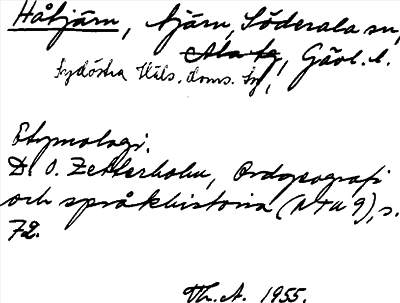 Håtjärn, tjärn, Söderala sn,
Ala tg, Gävl. l.
Sydöstra Häls. doms. tg,
Etymologi.
D. O. Zetterholm, Ordgeografi
och språkhistoria (NTU 9), s.
72.
Th. A. 1955.